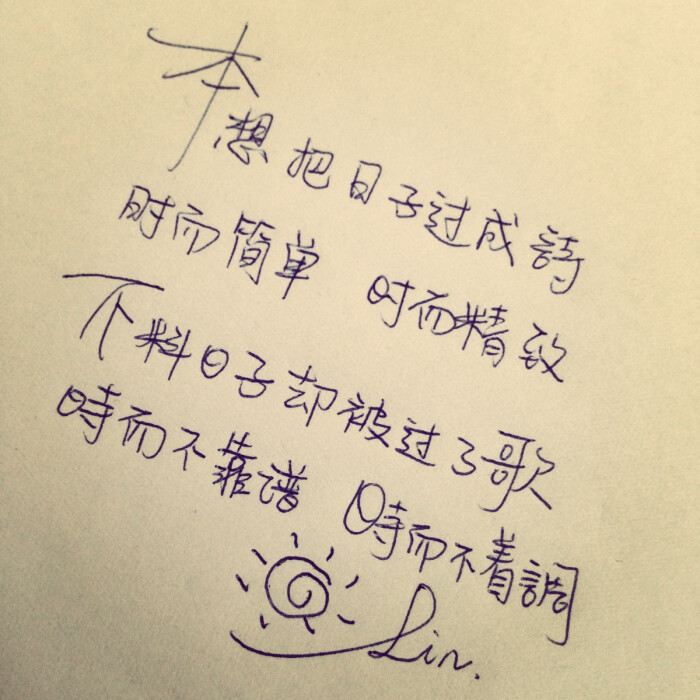 本想把日子过成詩
时而簡单 时而精致
不料日子却被过了歌
時而不靠谱 時而不着調
Lin.